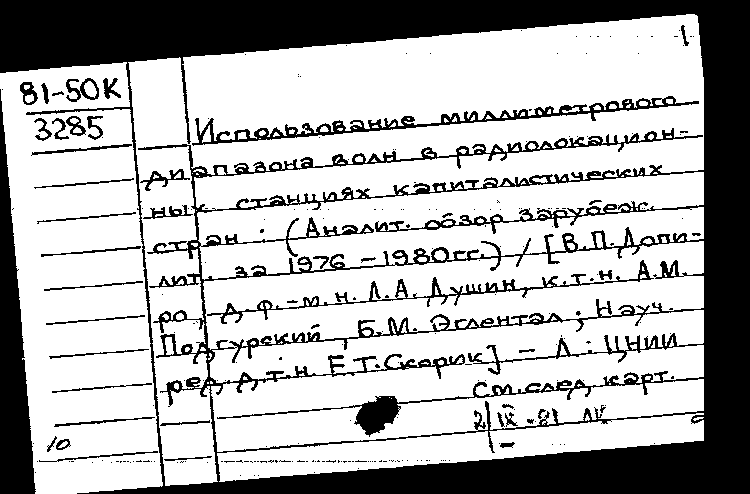 1
81-50К
3285
Использование миллиметрового
диапазона волн в радиолокацион-
ных станциях капиталистических
стран : (Аналит. обзор зарубеж.
лит. за 1976 - 1980гг.) / [В.П. Допи-
ро, д.ф.-м.н. Л.А. Душин, к.т.н. А.М.
Подгурский, Б.М. Эглентал ; Науч.
ред. д.т.н. Е.Т. Скорик] - Л : ЦНИИ
см. след. карт.
2/IX-81
10